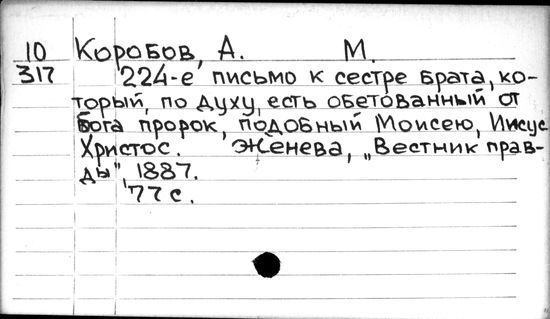 10 Коробов, А. М.
317 224-е письмо к сестре брата, ко-
торый, по духу, есть обетованный от
Бога пророк, подобный Моисею, Иисус
Христос. Женева, „Вестник прав-
ды", 1887.
77 с.